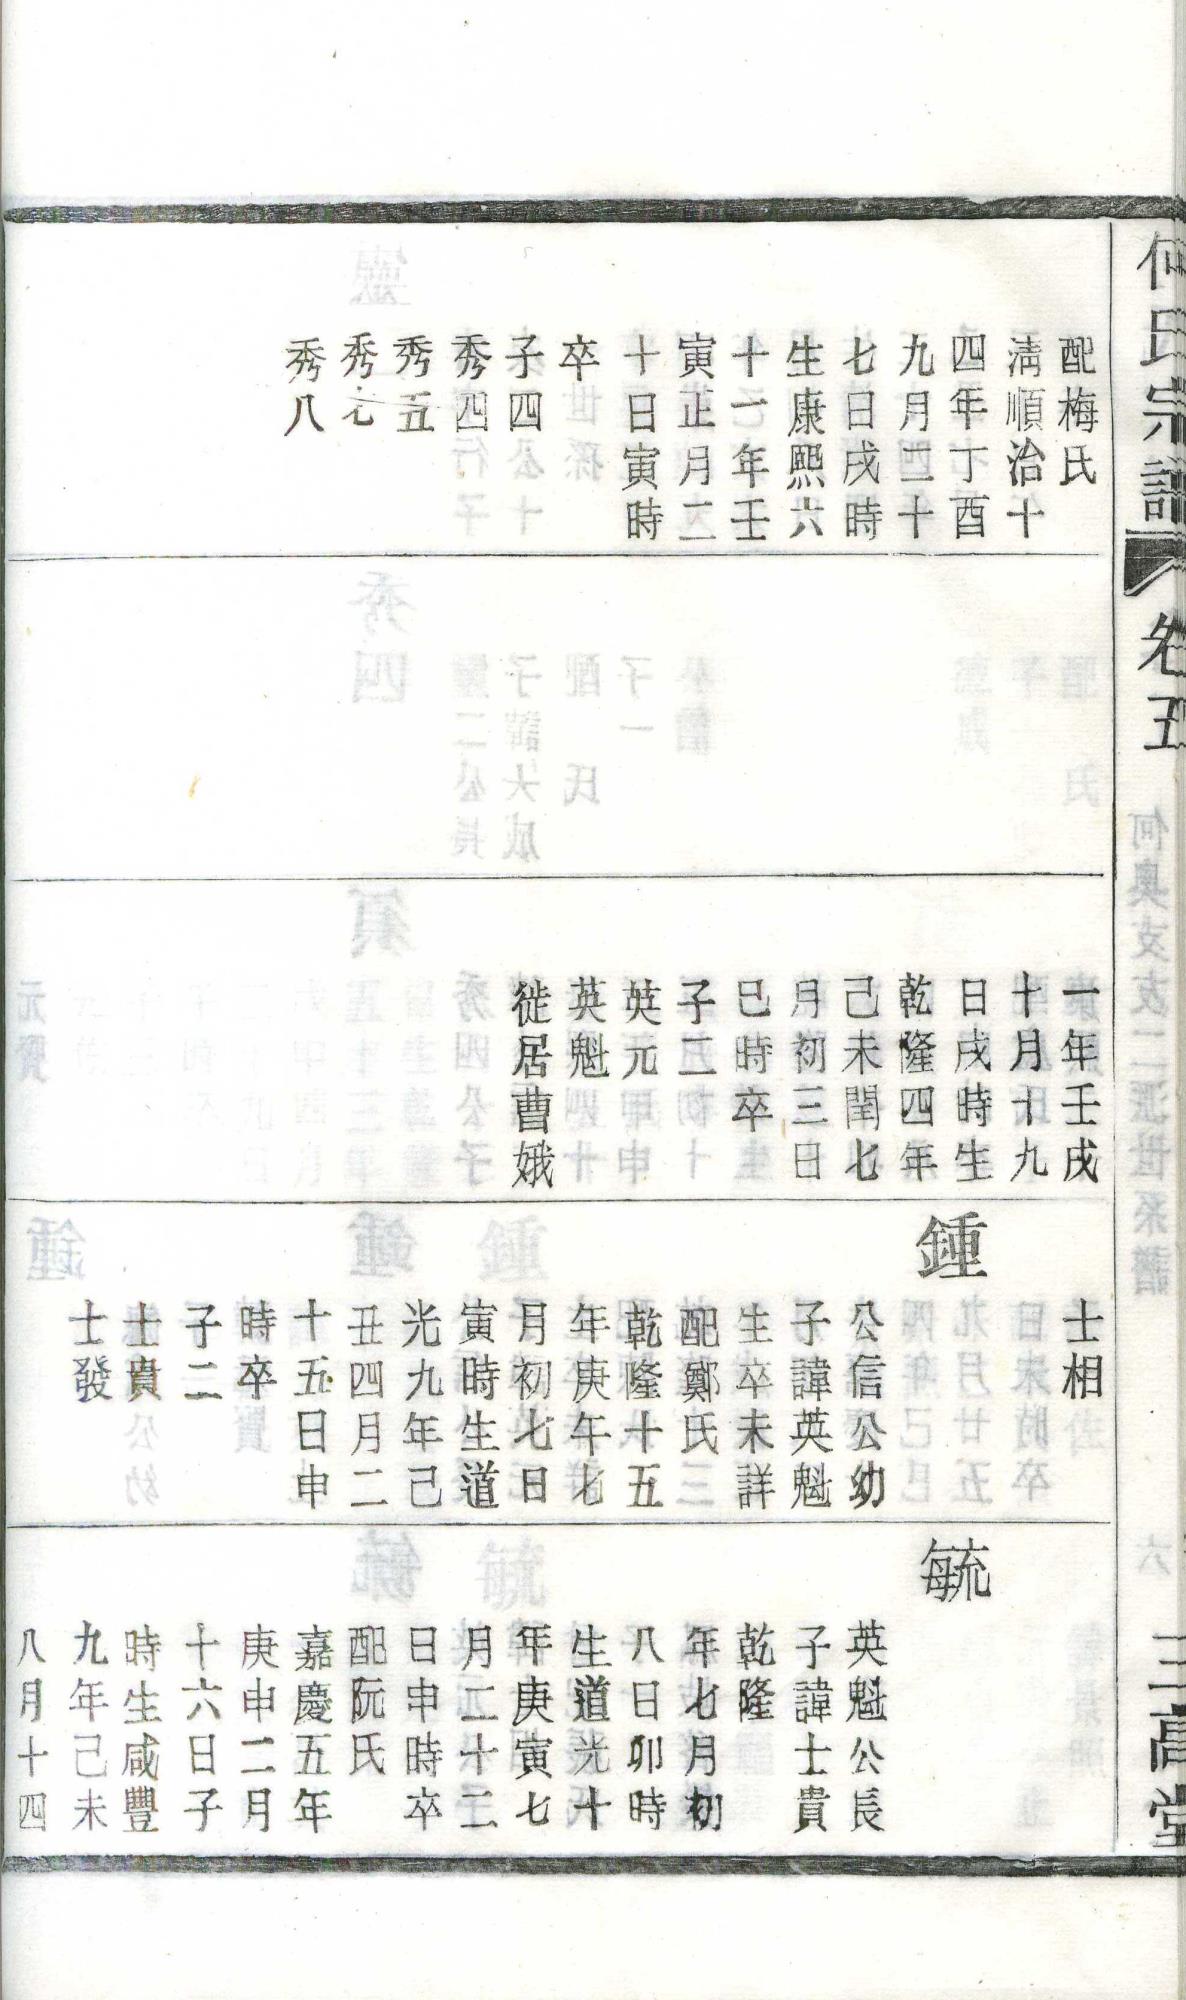 何氏宗譜
卷五
三高堂
配梅氏
清順治十
四年丁酉
九月二十
七日戌時
生康熙六
十一年壬
寅正月二
十日寅時
卒
子四
秀四
秀五
秀七
秀八
一年壬戌
十月十九
日戌時生
乾隆四年
己未閏七
月初三日
巳時卒
子二
英元
英魁
徙居曹娥
士相
鍾
公信公幼
子諱英魁
生卒未詳
配鄭氏
乾隆十五
年庚午七
月初七日
寅時生道
光九年己
丑四月二
十五日申
時卒
子二
士貴
士發
毓
英魁公長
子諱士貴
乾隆
年七月初
八日卯時
生道光十
年庚寅七
月二十二
日申時卒
配阮氏
嘉慶五年
庚申二月
十六日子
時生咸豐
九年己未
八月十四